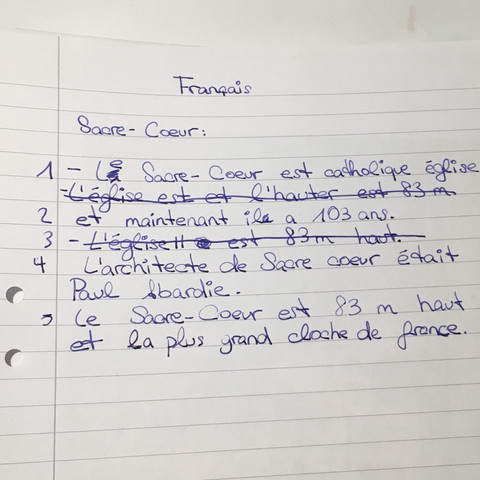 Français
Sacre-Coeur:
1 - Le Sacre-Coeur est catholique église
- L'église est et l'hauter est 83 m
2 et maintenant il a 103 ans.
3 - L'église est 83 m haut.
4 L'architecte de Sacre coeur était
Paul Abardie.
5 Le Sacre-Coeur est 83 m haut
et la plus grand cloche de france.